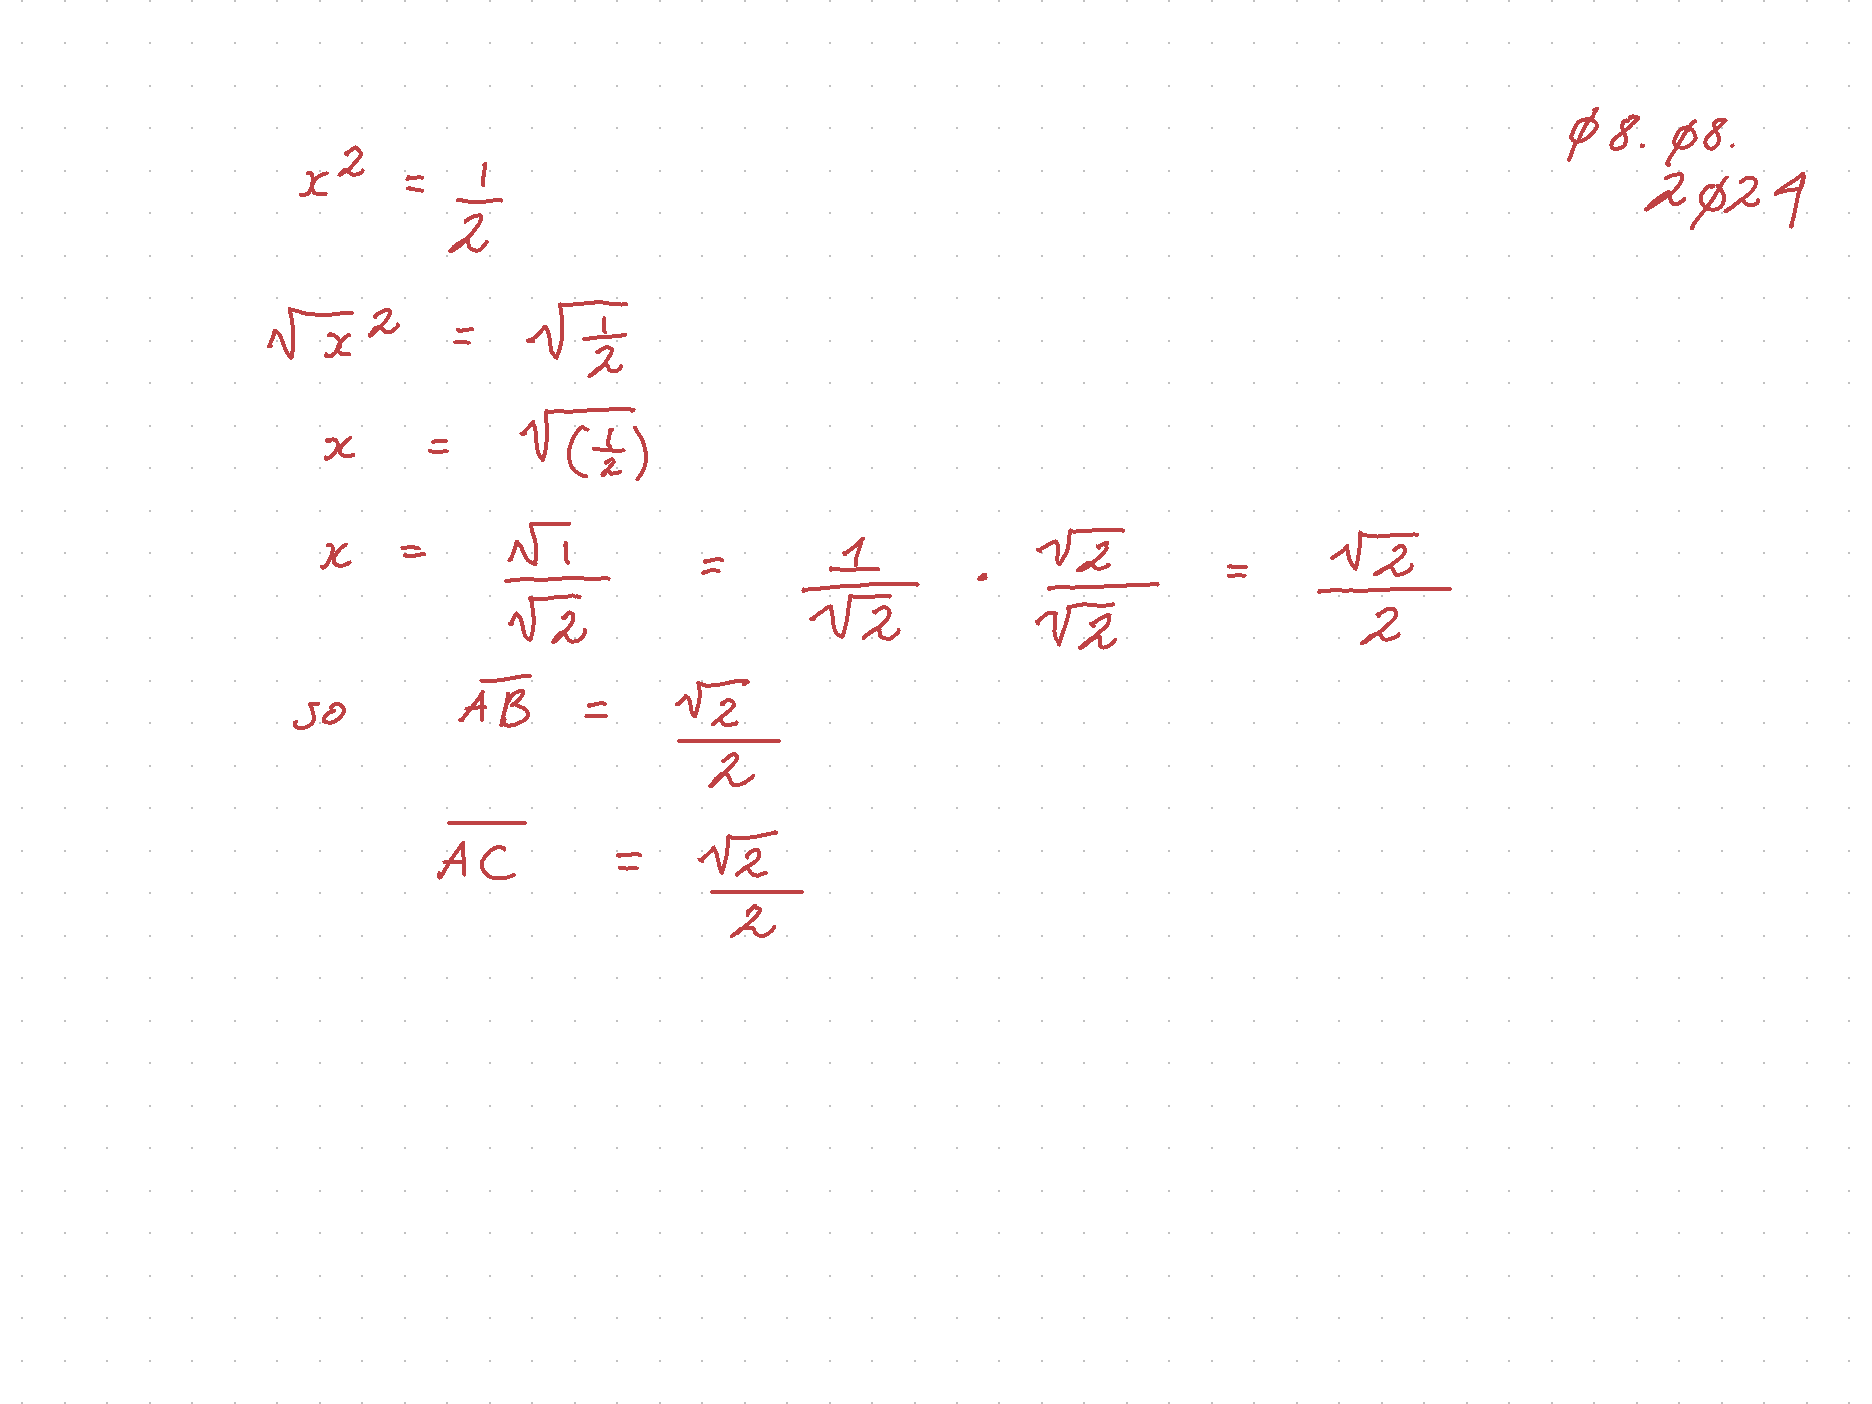 ø8. ø8.
2ø24
x² = 1/2
√x² = √1/2
x = √(1/2)
x = √1/√2 = 1/√2 · √2/√2 = √2/2
so A̅B̅ = √2/2
A̅C̅ = √2/2